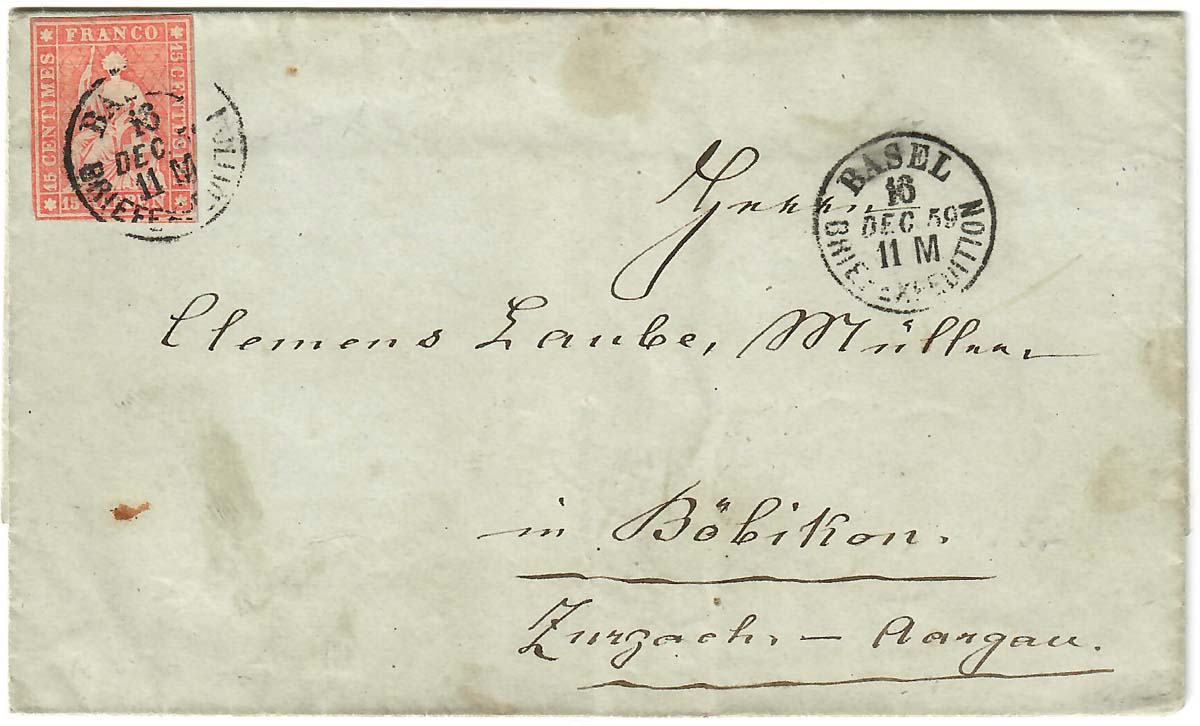 FRANCO
15 CENTIMES
15 CENT
15
BA
16
DEC.
11 M
BRIEFE
BASEL
16
DEC 59
11 M
BRIEFEXPEDITION
Herrn
Clemens Laube, Müller
in Böbikon.
Zurzach. – Aargau.